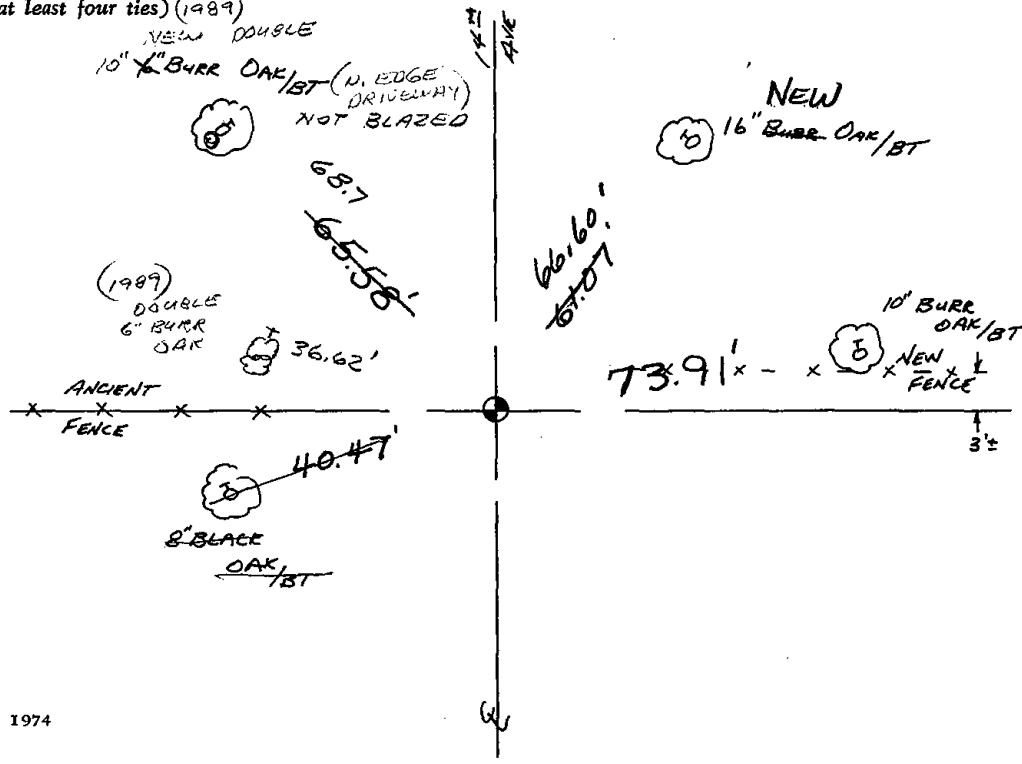 at least four ties) (1989)
NEW DOUBLE
10" 6" BURR OAK/BT (N. EDGE
DRIVEWAY)
NOT BLAZED
14TH
AVE
NEW
16" BURR OAK/BT
68.7
65.58'
66.60'
61.07
(1989)
DOUBLE
6" BURR
OAK
36.62'
10" BURR
OAK/BT
73.91'
NEW
FENCE
ANCIENT
FENCE
3'±
40.47'
8" BLACK
OAK/BT
1974